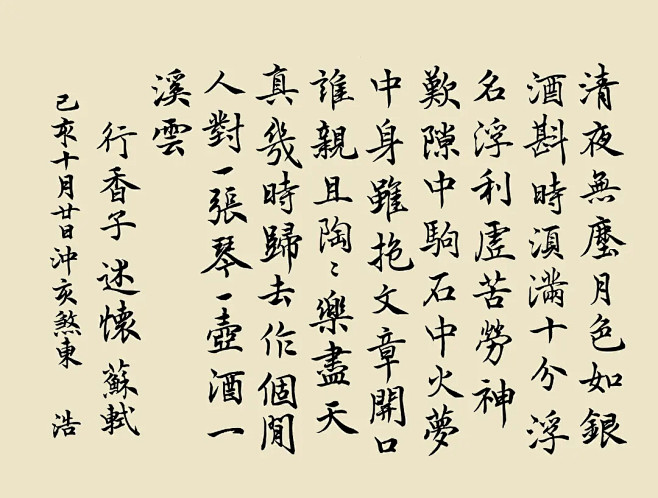 清夜無塵月色如銀
酒斟時須滿十分浮
名浮利虛苦勞神
歎隙中駒石中火夢
中身雖抱文章開口
誰親且陶〻樂盡天
真幾時歸去作個閒
人對一張琴一壺酒一
溪雲
行香子 述懷 蘇軾
己亥十月廿日沖亥煞東 浩